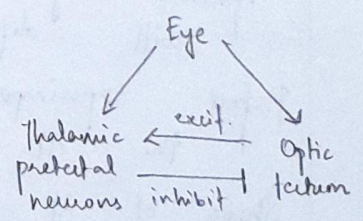 Eye
excit.
Thalamic
pretectal
neurons
inhibit
Optic
tectum